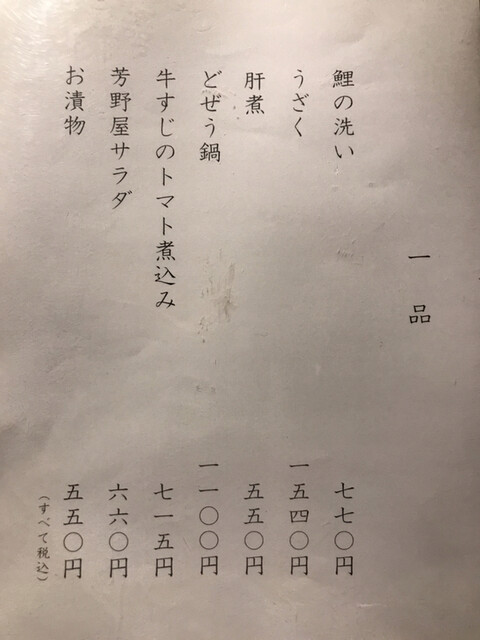 一品
鯉の洗い 七七〇円
うざく 一五四〇円
肝煮 五五〇円
どぜう鍋 一一〇〇円
牛すじのトマト煮込み 七一五円
芳野屋サラダ 六六〇円
お漬物 五五〇円
(すべて税込)